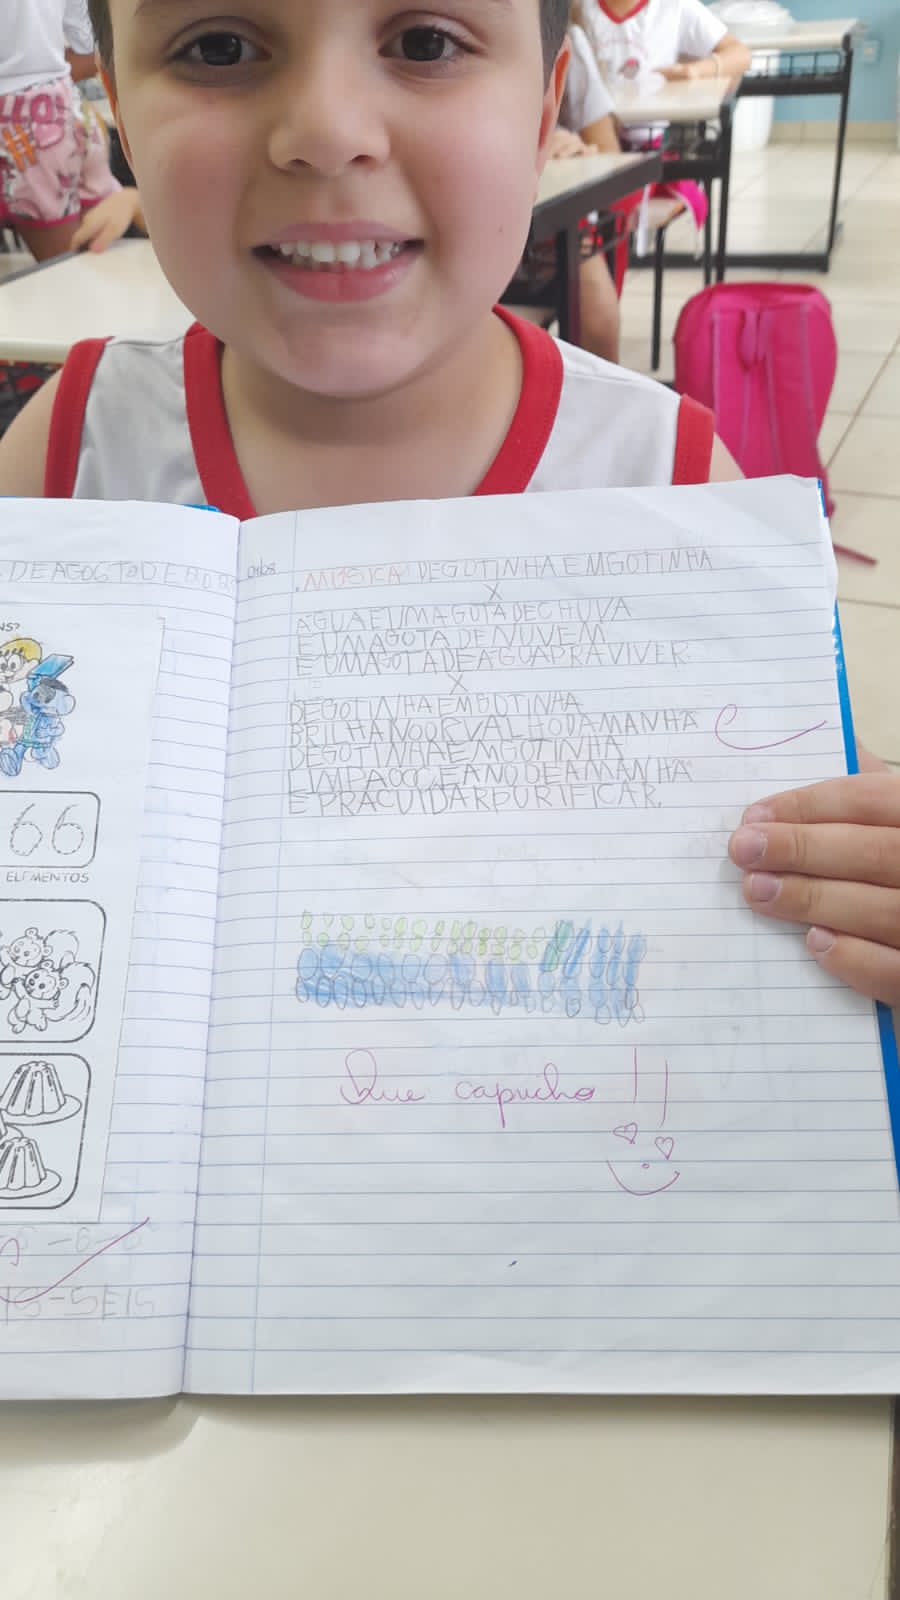 LLO
DE AGOSTO DE
NS?
66
ELEMENTOS
-6-6
IS-SEIS
MÚSICA: DE GOTINHA EM GOTINHA
X
ÁGUA É UMA GOTA DE CHUVA
É UMA GOTA DE NUVEM
É UMA GOTA DE ÁGUA PRA VIVER
X
DE GOTINHA EM GOTINHA
BRILHA NO ORVALHO DA MANHÃ
DE GOTINHA EM GOTINHA
LIMPA O OCEANO DE AMANHÃ
E PRA CUIDAR PURIFICAR.
C
Que capricho!!